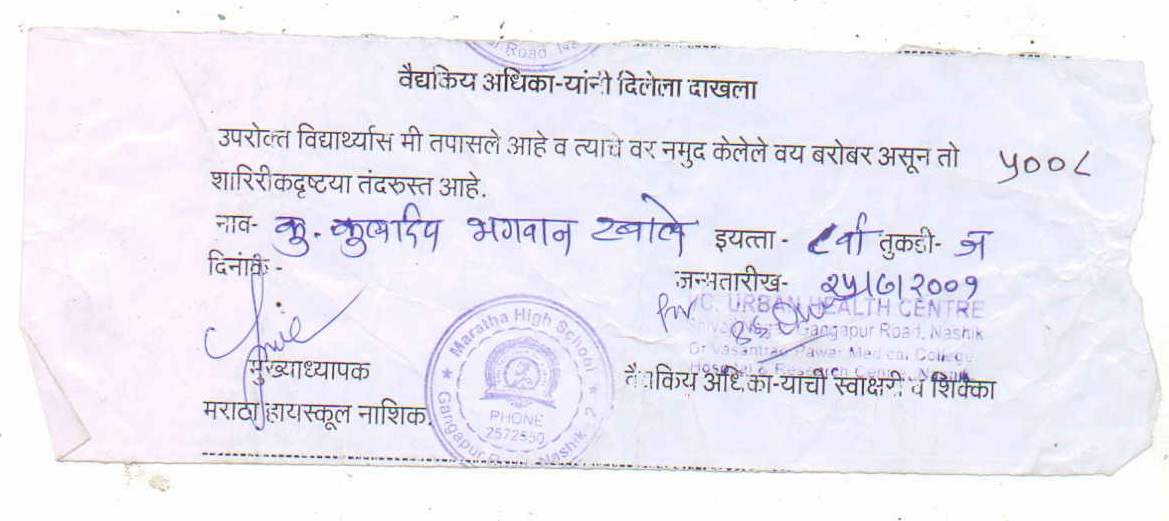 al Road, Na
वैद्यकिय अधिका-यांनी दिलेला दाखला
उपरोक्त विद्यार्थ्यास मी तपासले आहे व त्याचे वर नमुद केलेले वय बरोबर असून तो ५००८
शारिरीकदृष्टया तंदरुस्त आहे.
नाव- कु. कुलदिप भगवान रबाले इयत्ता - ८वी तुकडी- ज
दिनांक - जन्मतारीख- २५/७/२००१
URBAN HEALTH CENTRE
Gangapur Road, Nashik
Dr Vasantrao Pawar Medical College
Hospital & Research Centre, Nashik
मुख्याध्यापक वैद्यकिय अधिका-यांची स्वाक्षरी व शिक्का
मराठा हायस्कूल नाशिक.
Maratha High School
PHONE
2572550
Gangapur Road, Nashik - 2